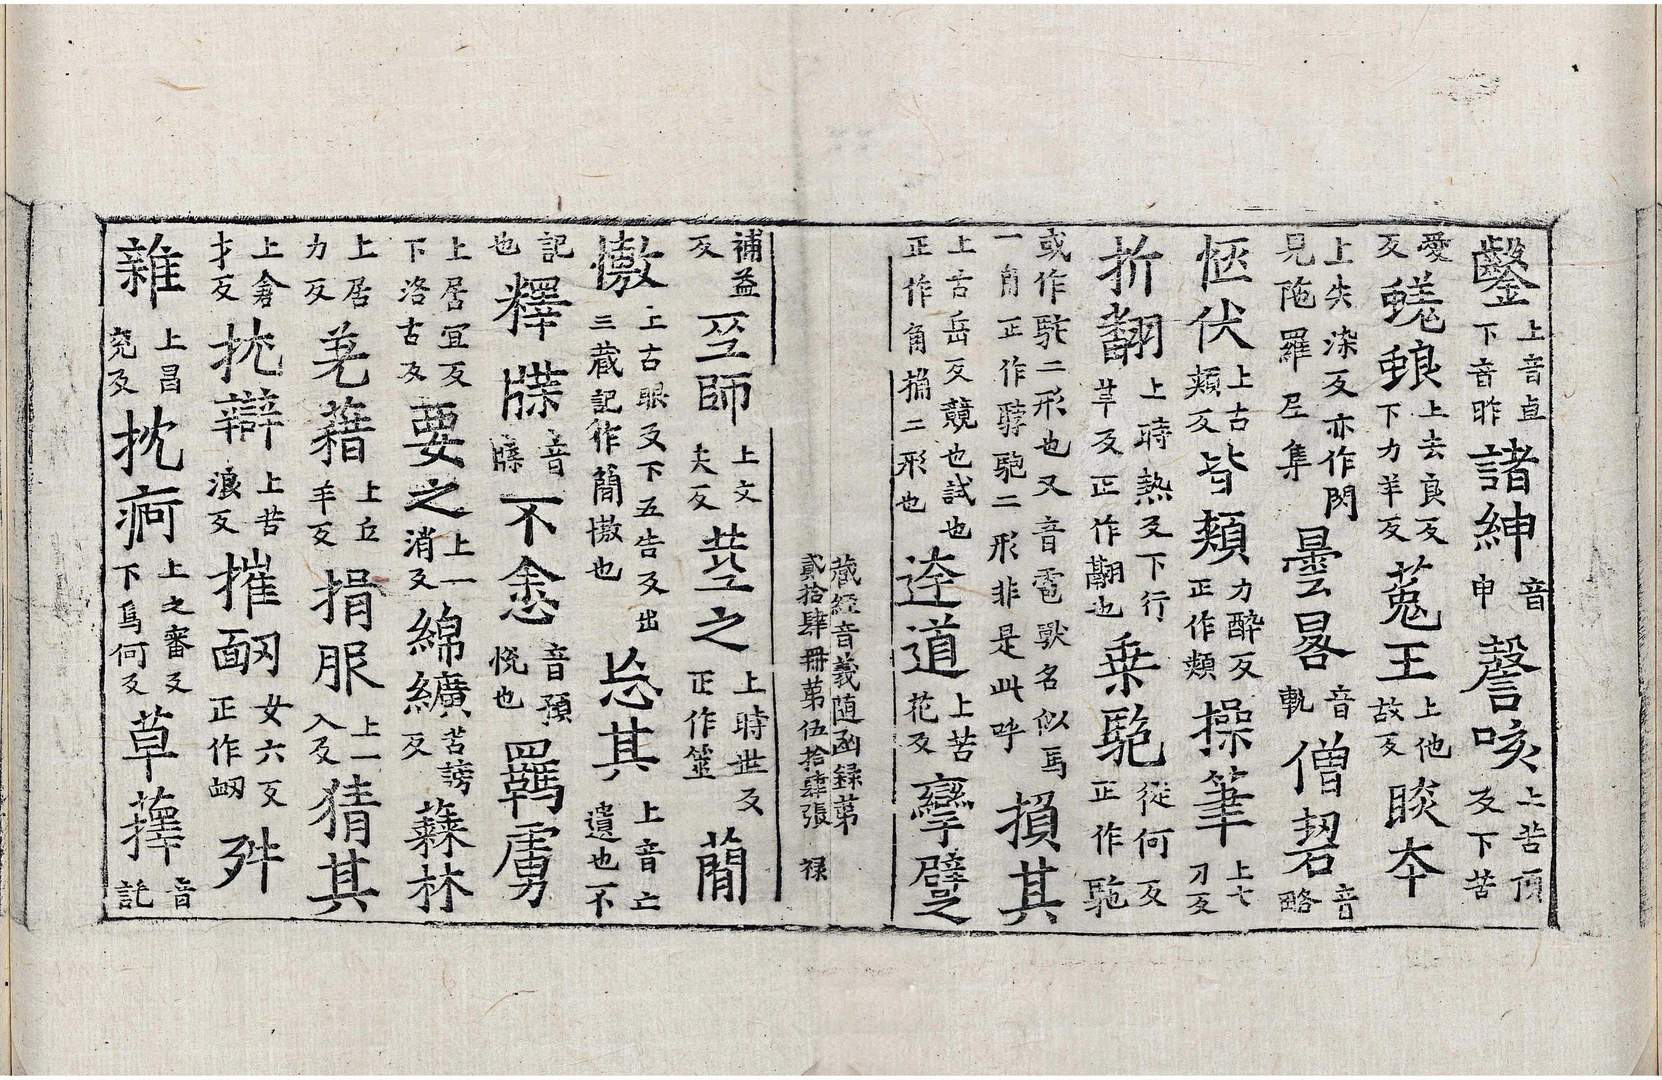 鑿上音㡳下音昨諸紳音申謦咳上苦頂反下苦
愛反蜣蜋上去良反下力羊反菟王上他故反睒夲
上失染反亦作閃見陁羅尼集曇晷音軌僧䂮音略
恇伏上古頰反皆纇力酔反正作纇操筆上七刀反
折翻上時熱反下行𦍒反正作翮也乗駞徒何反正作駞
或作駝二形也又音雹獸名似馬一角正作䮀駂二形非是此呼損其
上苦岳反競也試也正作角捔二形也逵道上苦花反孿躄
藏経音義随函録第貳拾肆冊第伍拾肆張 禄
補益反巫師上文夫反筮之上時世反正作筮蕳
憿上古眼反下五告反出三藏記作蕳憿也忘其上音亡遺也不
記也釋牒音牒不悆音預悅也羈虜
上居宜反下洛古反要之上一消反綿纊苦謗反蘃林
上居力反羌藉上丘羊反揖服上一入反猜其
上倉才反抗辯上苦浪反摧衂女六反正作衂舛
雜上昌兖反枕疴上之審反下烏何反草蘀音託